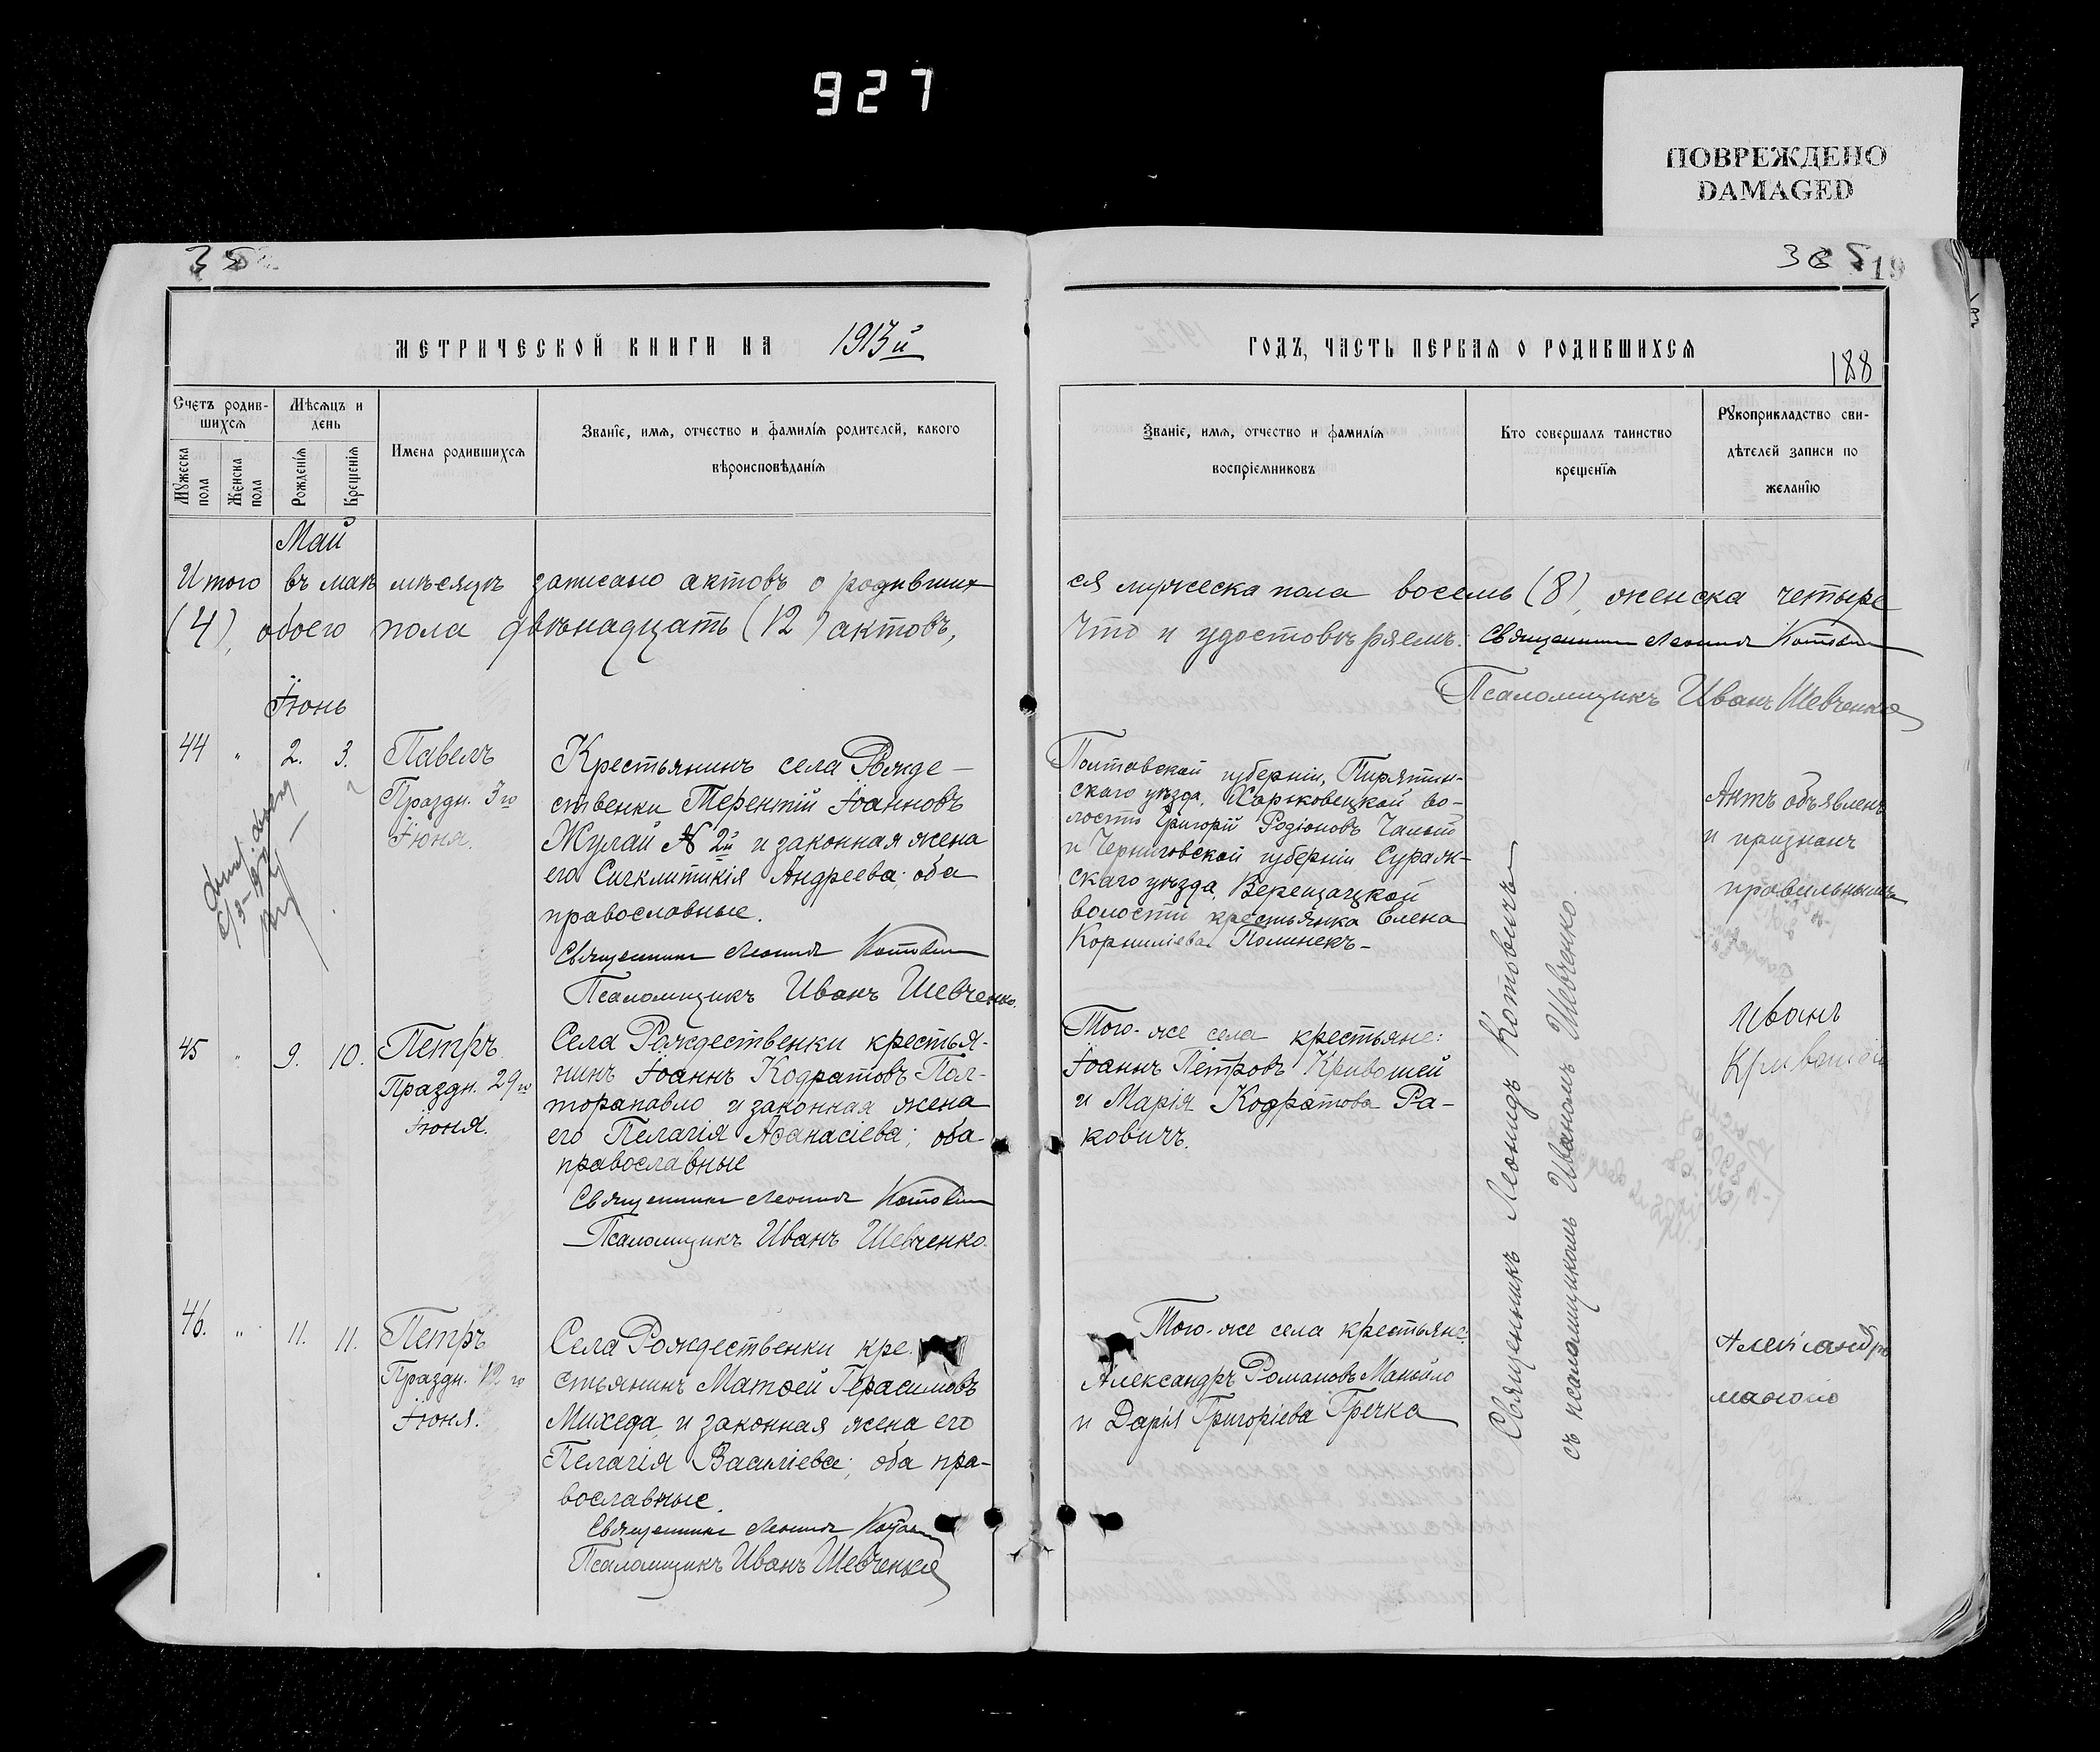 927
ПОВРЕЖДЕНО
DAMAGED
35
19
МЕТРИЧЕСКОЙ КНИГИ НА 1913й
ГОДЪ, ЧАСТЬ ПЕРВАЯ О РОДИВШИХСЯ
188
Счетъ родив-
шихся
Мужеска
пола
Женска
пола
Мѣсяцъ и
день
Рожденія
Крещенія
Имена родившихся
Званіе, имя, отчество и фамилія родителей, какого
вѣроисповѣданія
Званіе, имя, отчество и фамилія
воспріемниковъ
Кто совершалъ таинство
крещенія
Рукоприкладство сви-
дѣтелей записи по
желанію
Май
Итого въ маѣ мѣсяцѣ записано актовъ о родивших
ся мужеска пола восемь (8), женска четыре
(4), обоего пола двѣнадцать (12) актовъ,
что и удостовѣряемъ: Священникъ Леонидъ Котовичъ
Псаломщикъ Иванъ Шевченко
Іюнь
44 " 2. 3.
Павелъ
Праздн. 3го
Іюня.
Крестьянинъ села Рожде-
ственки Терентій Іоанновъ
Жулай № 2й и законная жена
его Сигклитикія Андреева; оба
православные.
Священникъ Леонидъ Котовичъ
Псаломщикъ Иванъ Шевченко.
Полтавской губерніи, Пирятин-
скаго уѣзда, Харьковецкой во-
лости Григорій Родіоновъ
и Черниговской губерніи Сураж-
скаго уѣзда, Верещацкой
волости крестьянка Елена
Корниліева
Актъ объявленъ
и признанъ
правильнымъ
45 " 9. 10.
Петръ
Праздн. 29го
Іюня.
Села Рождественки крестья-
нинъ Іоаннъ Кодратовъ Пол-
торапавло и законная жена
его Пелагія Аѳанасіева; оба
православные
Священникъ Леонидъ Котовичъ
Псаломщикъ Иванъ Шевченко.
Того-же села крестьяне:
Іоаннъ Петровъ Кривошей
и Марія Кодратова Ра-
ковичъ.
Иванъ
Кривошей
46. " 11. 11.
Петръ
Праздн. 12го
Іюня.
Села Рождественки кре
стьянинъ Матѳей Герасимовъ
Михеда и законная жена его
Пелагія Василіева; оба пра-
вославные.
Священникъ Леонидъ Котовичъ
Псаломщикъ Иванъ Шевченко
Того-же села крестьяне:
Александръ Романовъ Манойло
и Дарія Григоріева Гречка
Александръ
манойло
Священникъ Леонидъ Котовичъ
съ псаломщикомъ Иваномъ Шевченко.